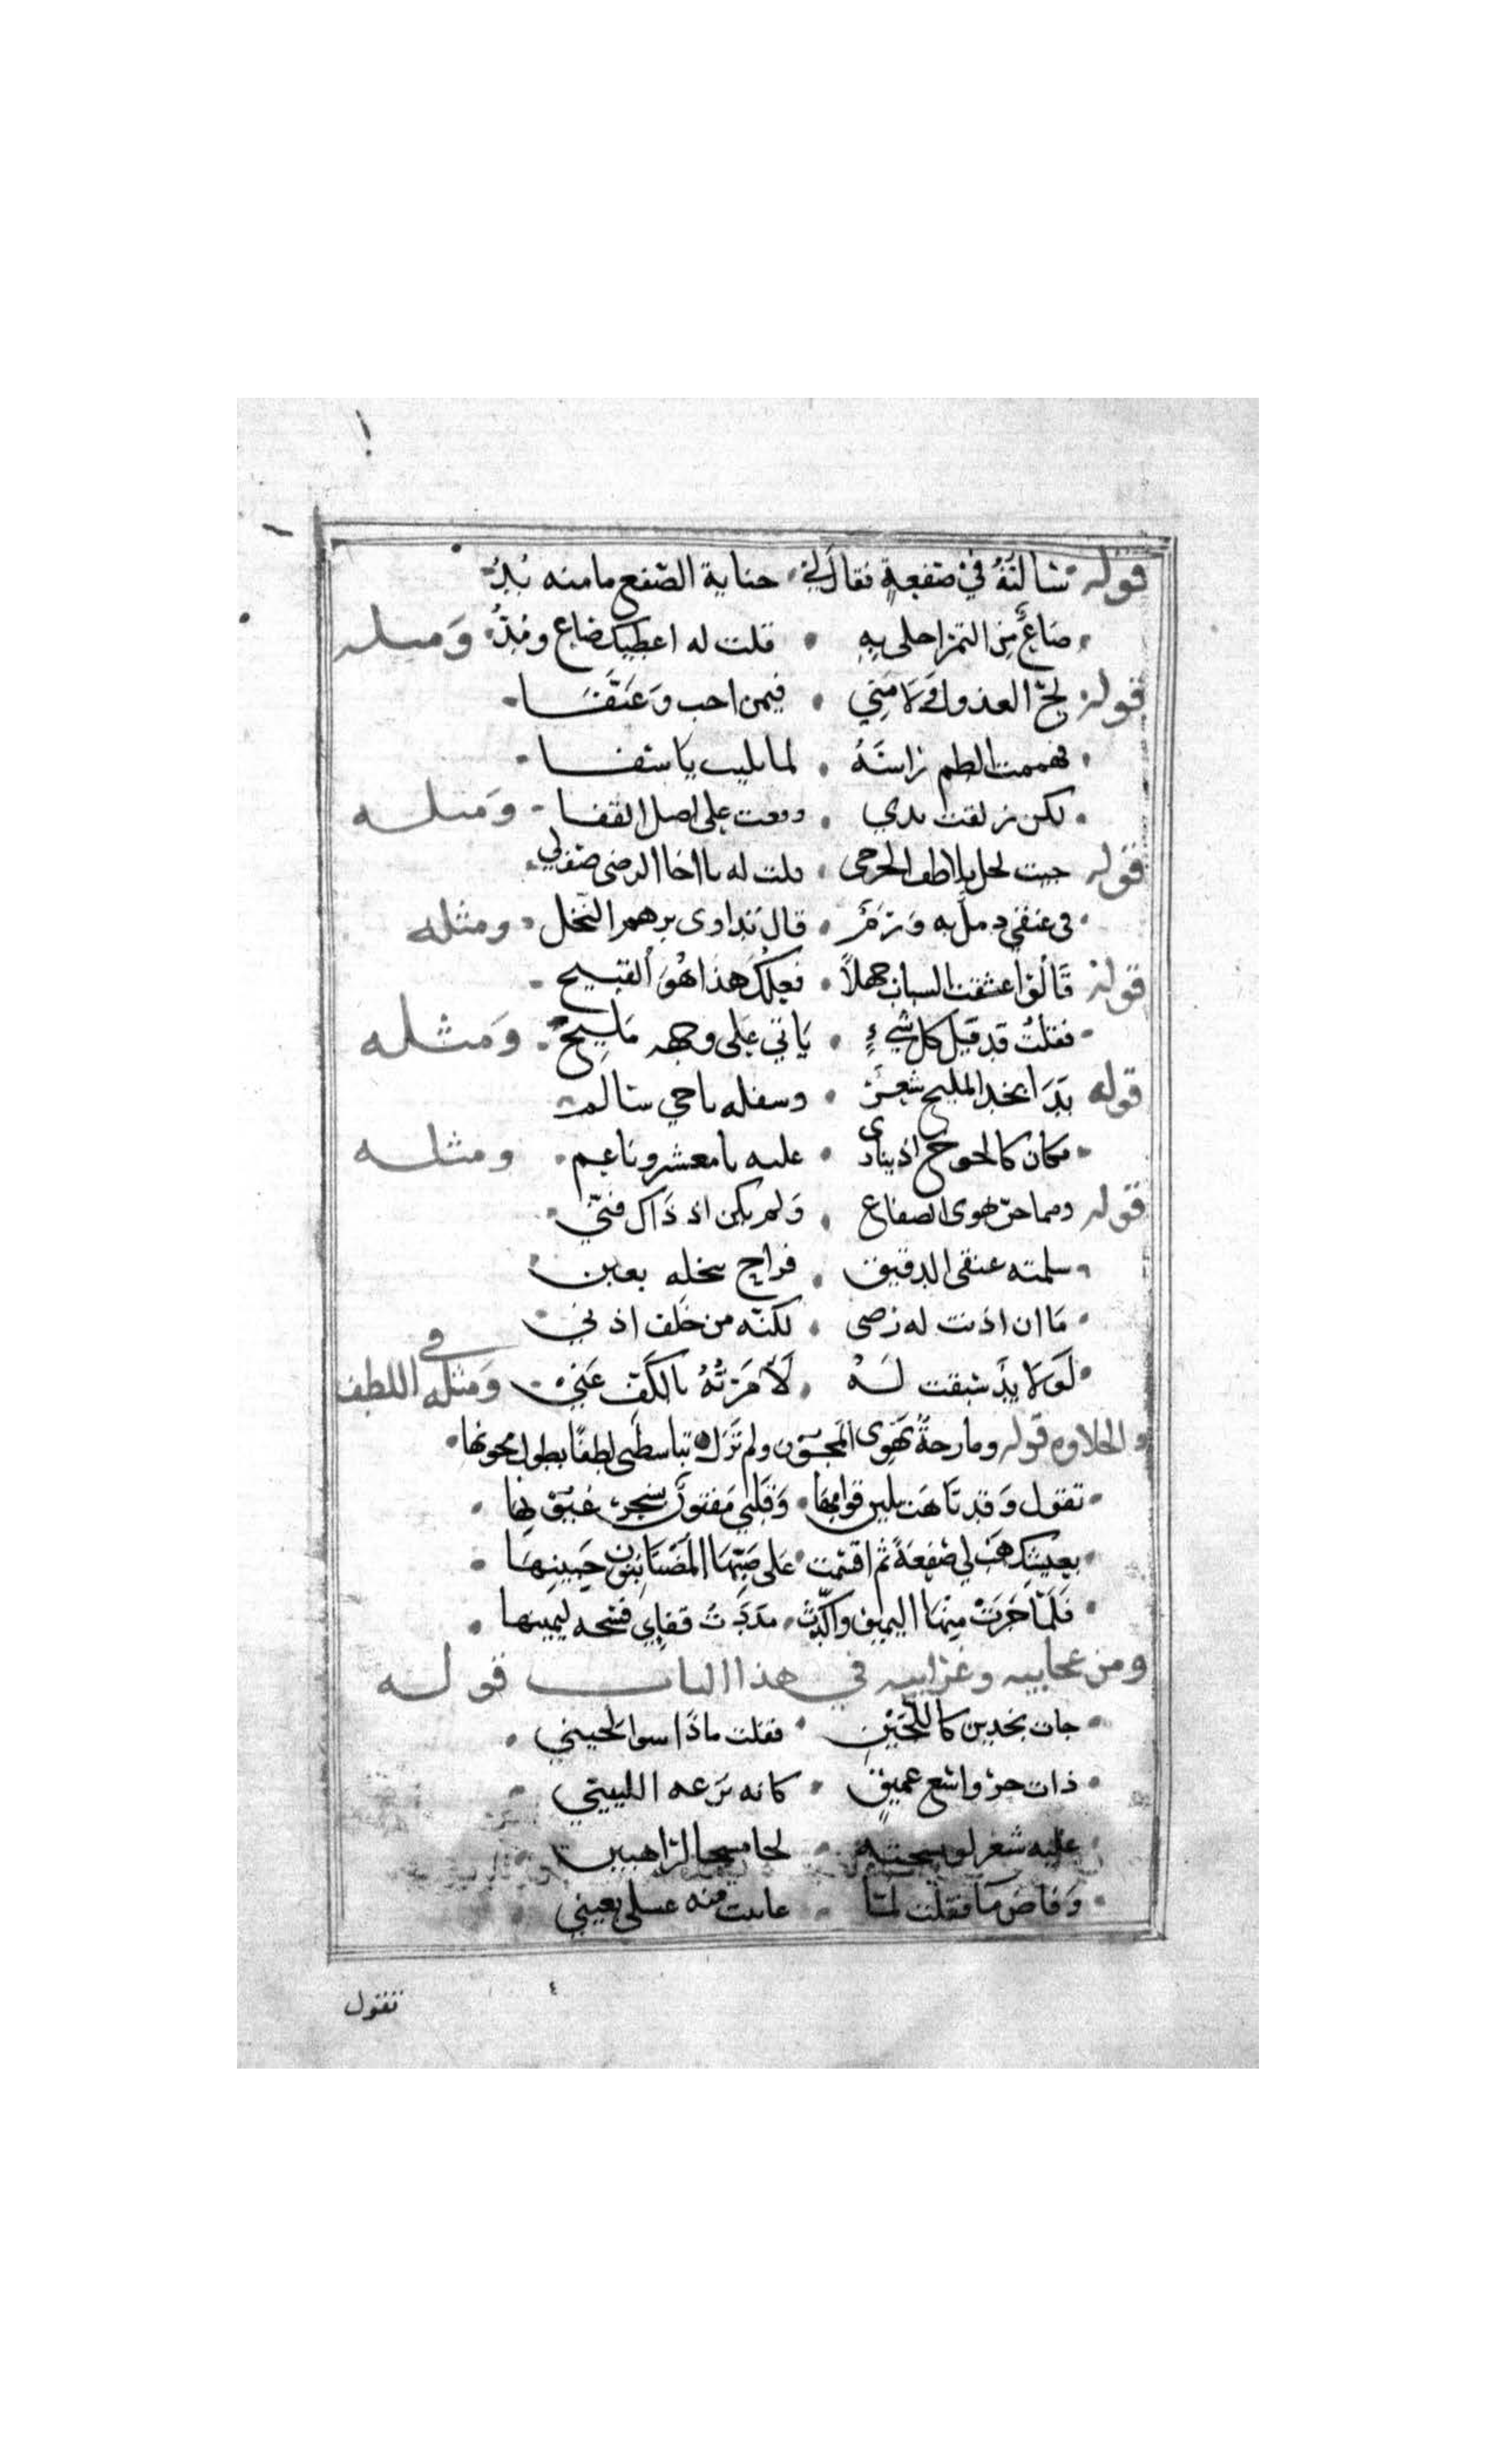 قوله سالته في صفعة فقال لي حناية الصفع ما منه بد
صاع من التمر احلى به قلت له اعطيك صاع ومد ومثله
قوله لج العذول ولامني فيمن احب وعنفا
فهممت الطم راسه
لكن زلقت يدي ووقعت على اصل القفا ومثله
قوله جيت لحل قلت له يا اخا الرضى صف لي
في عنقي دمل به ورم قال تداوى بمرهم النخل ومثله
قوله قالوا عشقت السباب جهلا فعلك هذا هو القبيح
فقلت قد قيل كل شيء ياتي على وجهه مليح ومثله
قوله بدا بخد المليح شعر وسفله يا حي سالم
فكان كالخوخ اذ ينادى عليه يا معشر وناعم ومثله
قوله ومما حن هوى الصفاع ولم يكن اذ ذاك فني
سلمته عنقي الدقيق فراح ينخله بغبن
ما ان اذنت له رضى لكنه من خلف اذني
لولا يد سبقت له لامرته بالكف عني ومثله في اللطف
والحلاوه قوله ومازحة تهوى المجون ولم تزل تباسطني لطفا بطول مجونها
تقول وقد تاهت بلين قوامها وقلبي مفتون بسحر عيونها
بعيشك هب لي صفعة ثم اقسمت على صبها المضنا بنون جبينها
فلما جرت منها اليمين واكدت مددت قفايي فسحه ليمينها
ومن عجايبه وغرايبه في هذا الباب قوله
جات بخدين كاللجين فقلت ماذا سوا لحيني
ذات حر واسع عميق كانه ترعه اللبيني
عليه شعر لو سحته لحا مسحا لراهبين
وفاض ما فقلت لما عاينت منه عسلى بعيني
تقول